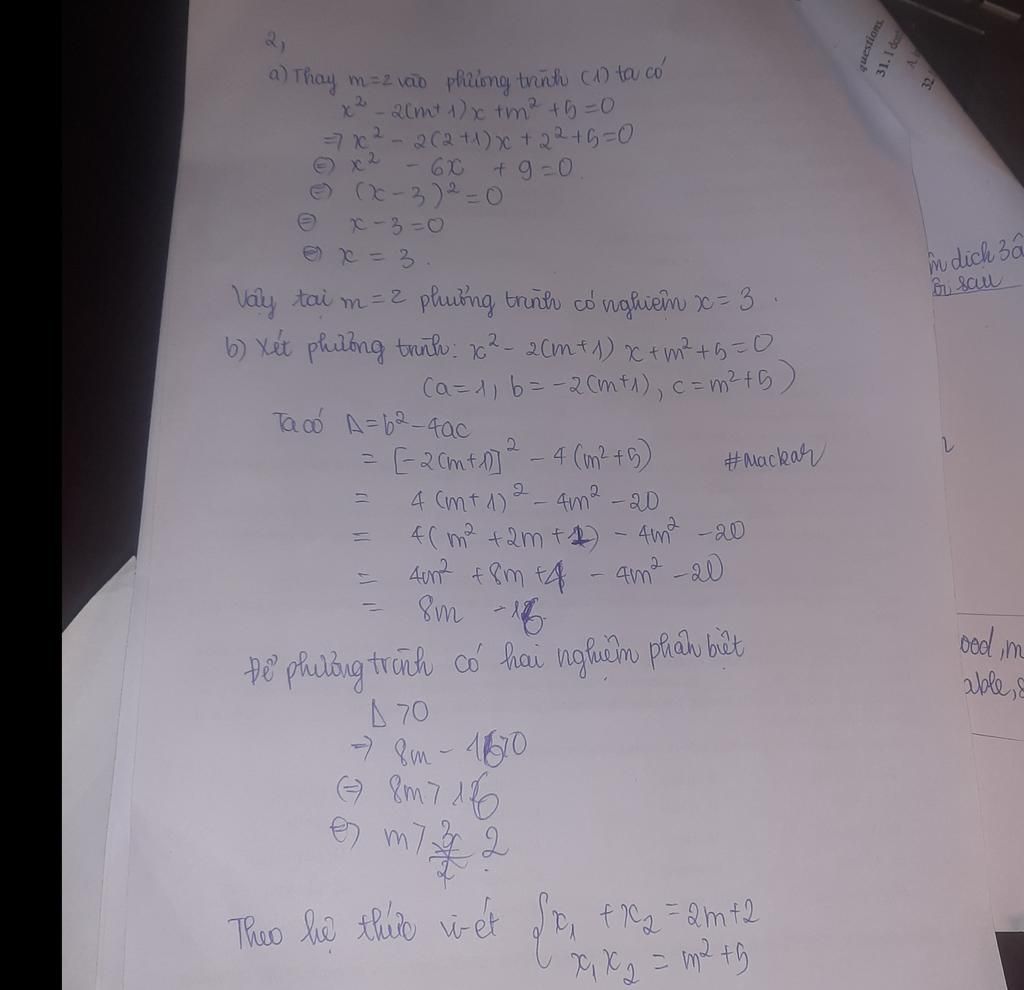 2,
a) Thay m=2 vào phương trình (1) ta có
x² - 2(m+1)x + m² + 5 = 0
=> x² - 2(2+1)x + 2² + 5 = 0
<=> x² - 6x + 9 = 0
<=> (x-3)² = 0
<=> x-3 = 0
<=> x = 3.
Vậy tại m=2 phương trình có nghiệm x=3.
b) Xét phương trình: x² - 2(m+1)x + m² + 5 = 0
(a=1, b=-2(m+1), c=m²+5)
Ta có Δ = b² - 4ac
= [-2(m+1)]² - 4(m²+5)
#mackar
= 4(m+1)² - 4m² - 20
= 4(m² + 2m + 1) - 4m² - 20
= 4m² + 8m + 4 - 4m² - 20
= 8m - 16
Để phương trình có hai nghiệm phân biệt
Δ > 0
=> 8m - 16 > 0
<=> 8m > 16
<=> m > 2
Theo hệ thức vi-ét { x₁ + x₂ = 2m+2
x₁x₂ = m² + 5
questions.
31. I
32
dịch 3
sau
ood, m
able,